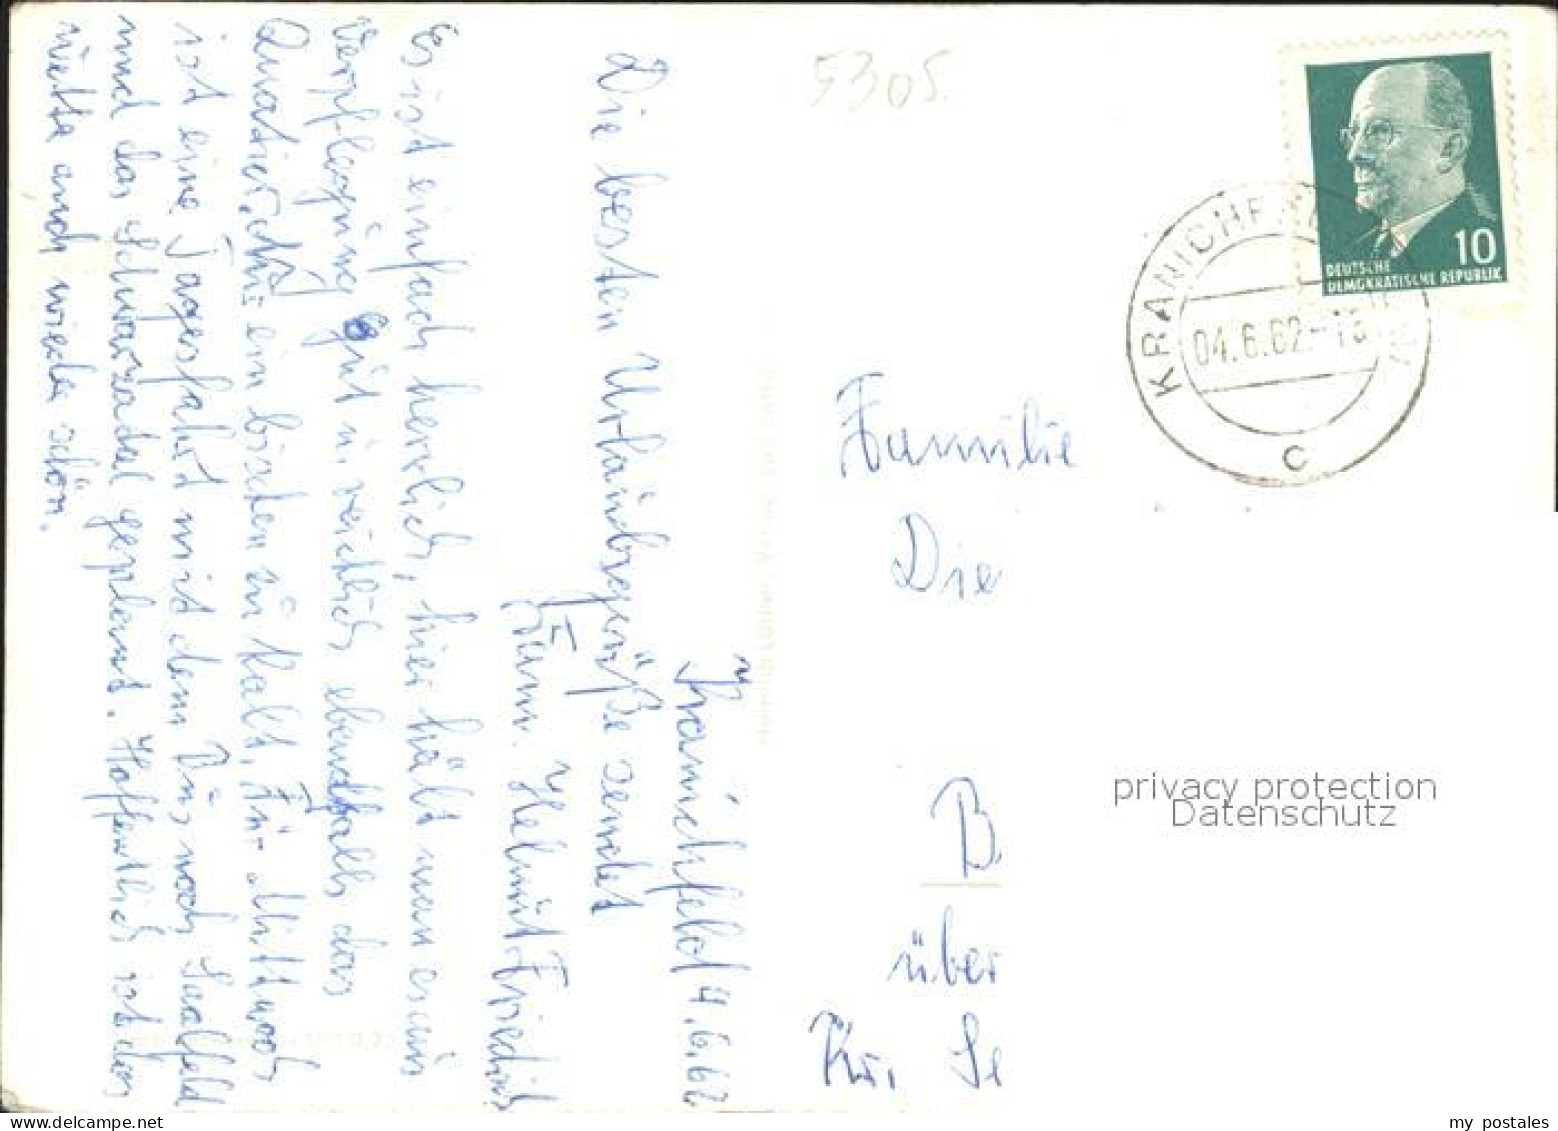 Kranichfeld 4.6.62
Die besten Urlaubsgrüße sendet
Fam. Helmut Friedrich
Es ist einfach herrlich, hier hält man es aus
Verpflegung gut u. reichlich ebenfalls das
Quatier, nur ein bischen zu kalt. Für Mittwoch
ist eine Tagesfahrt mit dem Bus nach Saalfeld
und das Schwarzatal geplant. Hoffentlich ist das
Wetta auch wieda schön.
5305.
DEUTSCHE
DEMOKRATISCHE REPUBLIK
10
KRANICHF
04.6.62
c
Familie
Die
B
über
Kr. Se
privacy protection
Datenschutz
my postales